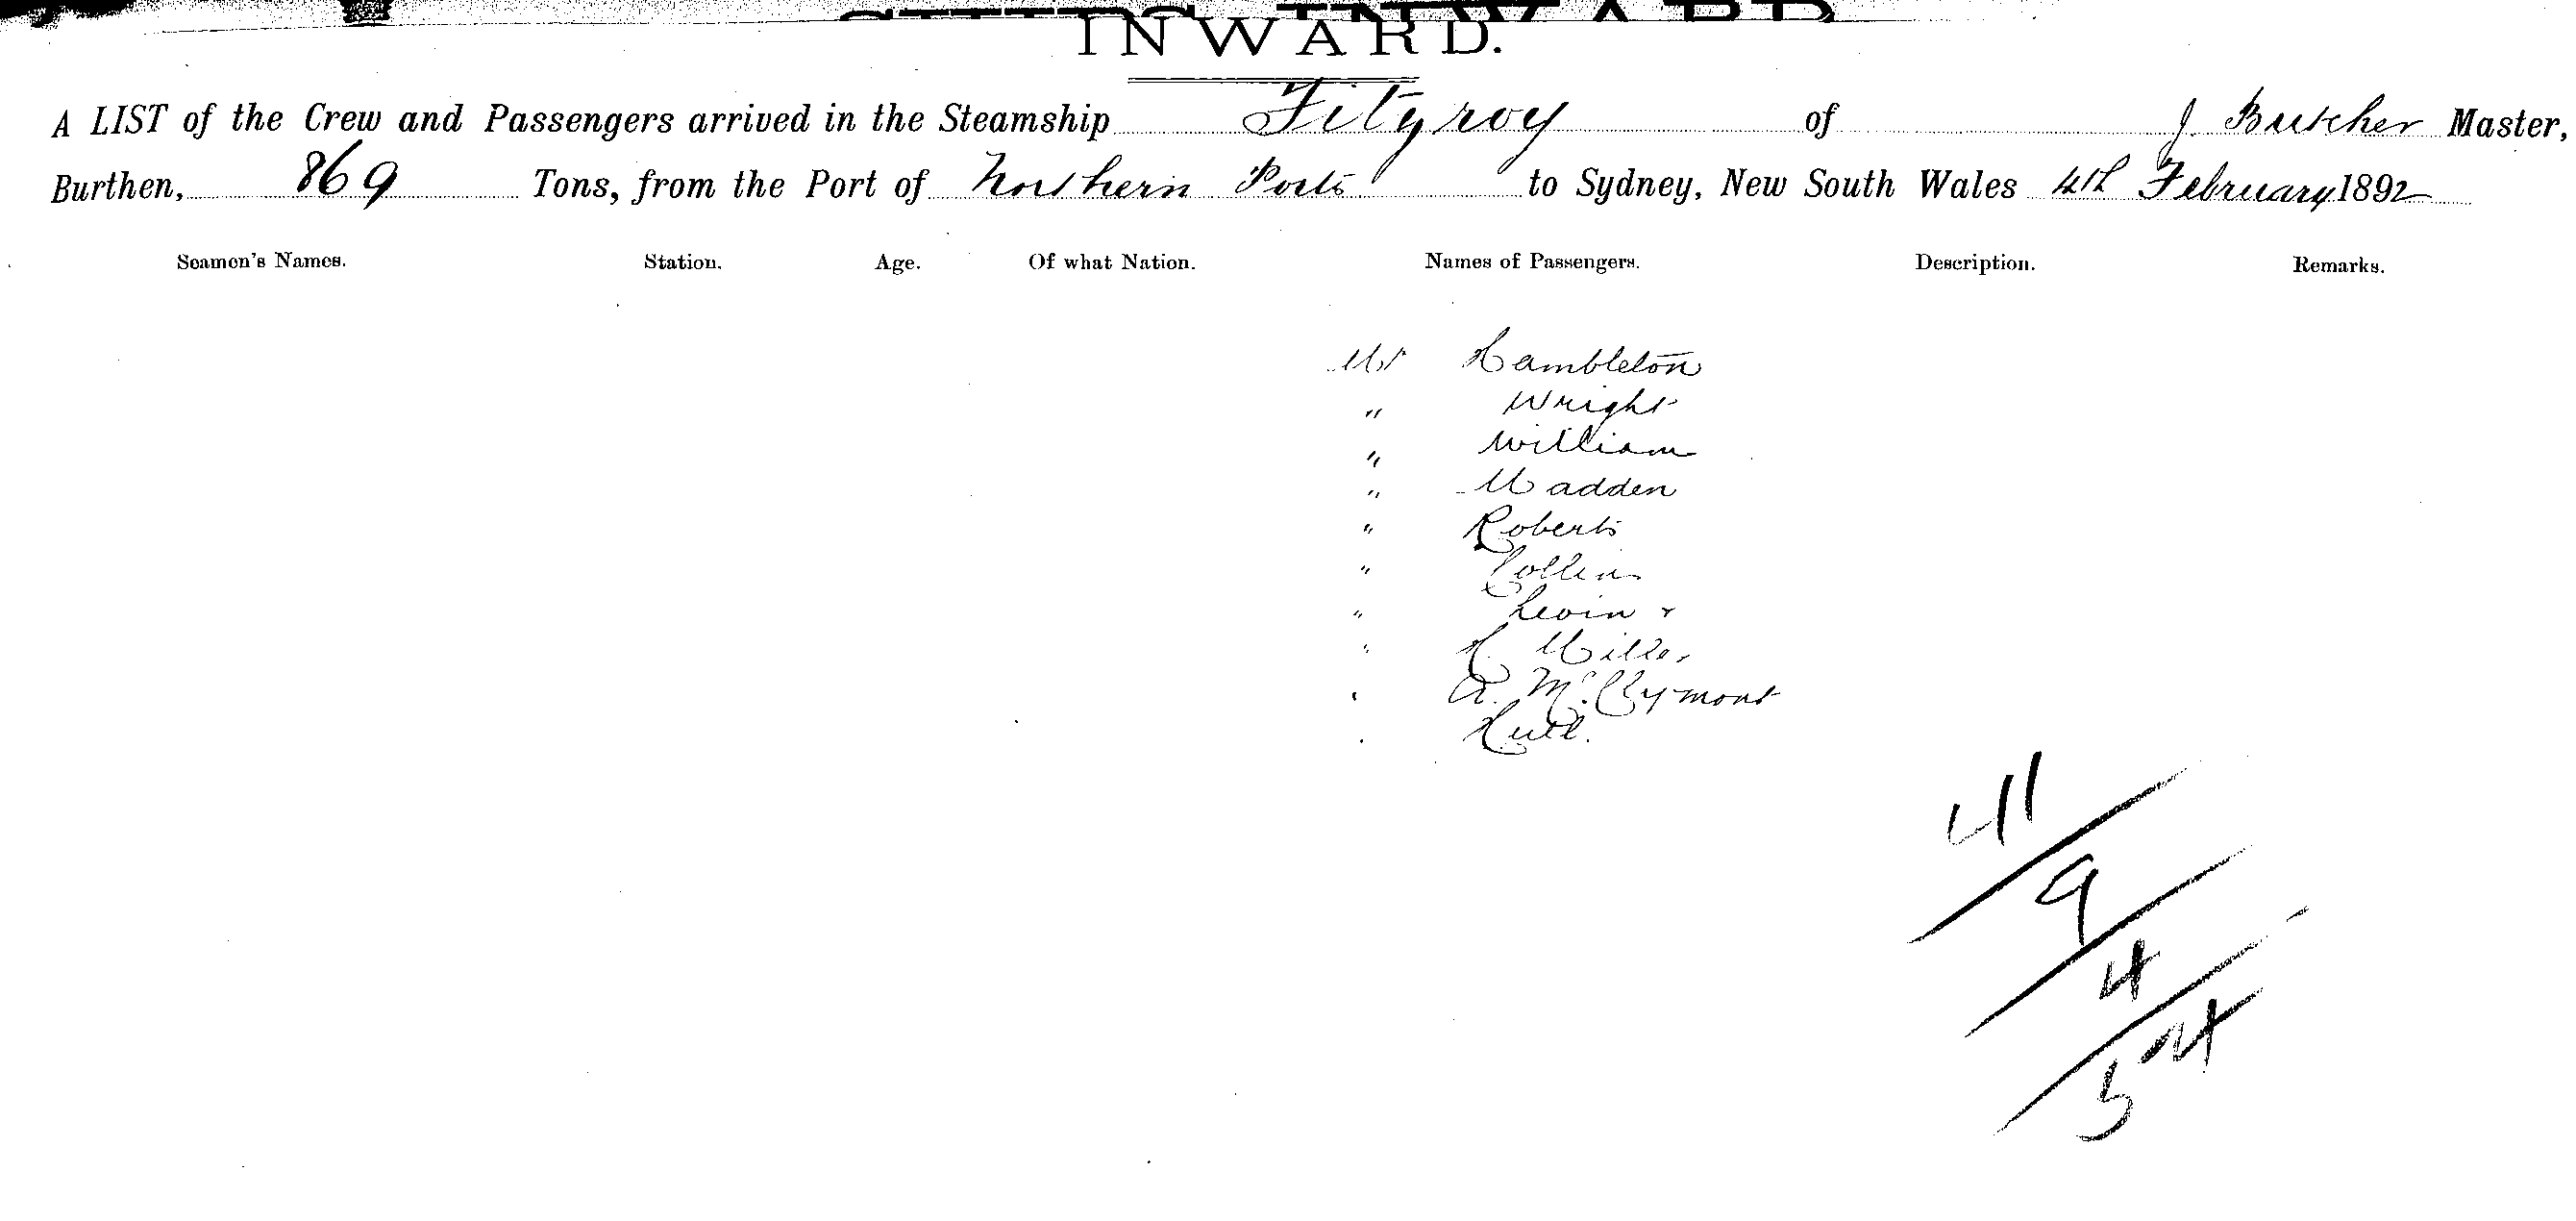 INWARD.
A LIST of the Crew and Passengers arrived in the Steamship Fitzroy of J. Butcher Master,
Burthen, 869 Tons, from the Port of Northern Ports to Sydney, New South Wales 4th February 1892
Seamen's Names. Station. Age. Of what Nation. Names of Passengers. Description. Remarks.
Mr Hambleton
" Wright
" William
" Madden
" Roberts
" Collins
" Levin
" H. Miller
" A. McClymont
41
9
4